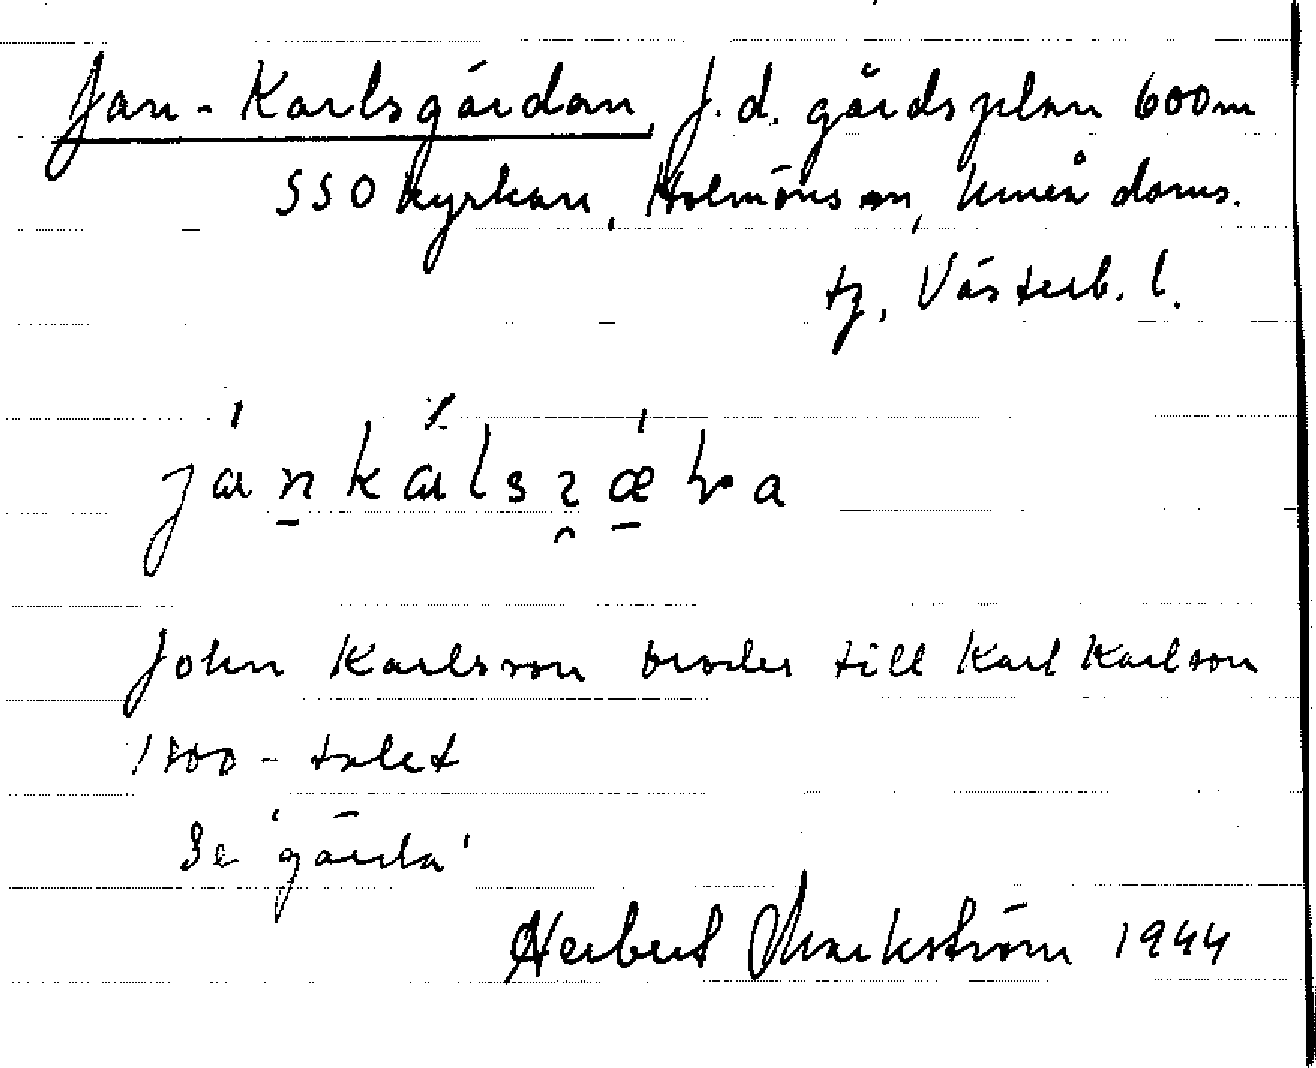 Jan-Karlsgärdan, f.d. gårdsplan 600m
SSO kyrkan, Holmöns sn, Umeå doms.
tg, Västerb. l.
John Karlsson broder till Karl Karlson
1800-talet
Se 'gärda'
Herbert Markström 1944